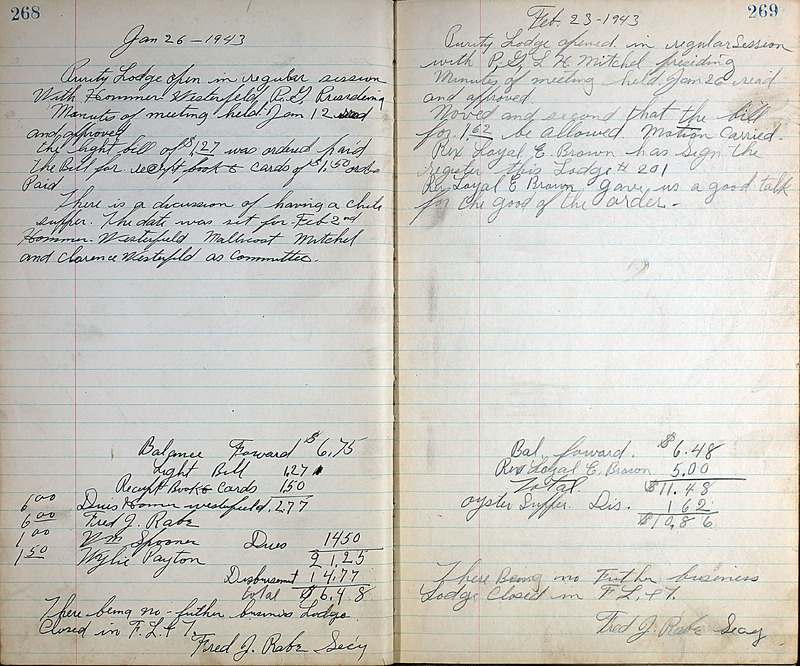 268
Jan 26-1943
Purity Lodge open in regular session
With Hommer Westerfield P.G. Presiding
Minutes of meeting held Jan 12 read
and approved
the light bill of $1,27 was ordered paid
the Bill for receipt book & cards of $1,50 
Paid
There is a dicussion of having a chile
supper. The date was set for Feb 2nd
Hommer Westerfield Mallicoat Mitchel
and Clarence Westerfeld as Committee.
Balance Foward $6,75
Light Bill 1,27
Receipt Book & Cards 150
6 00 Dues Homer westerfield, 2,77
6 00 Fred J. Rabe
1 00 Wm Spooner Dues 1450
1 50 Wylie Payton 21,25
Disbursment 14.77
total $6,48
There being no-futher business Lodge
Closed in F. L & T.
Fred J. Rabe Secy
269
Feb. 23-1943
Purity Lodge opened in regular Session
with P.G. L H Mitchel presiding
Minutes of meeting held Jan 26 read
and aproved
Moved and second that the bill
for. 1 62 be allowed. Motion Carried.
Rex Loyal E. Brown has Sign the
register this Lodge # 201
Rex Loyal E Brown gave us a good talk
for the good of the order-
Bal. foward. $6.48
Rex Loyal E. Brown 5.00
Total. $11.48
oyster Supper. Dis. 1 62
$10,86
There Being no Futher business
Lodge Closed in F. L & T.
Fred J. Rabe Secy